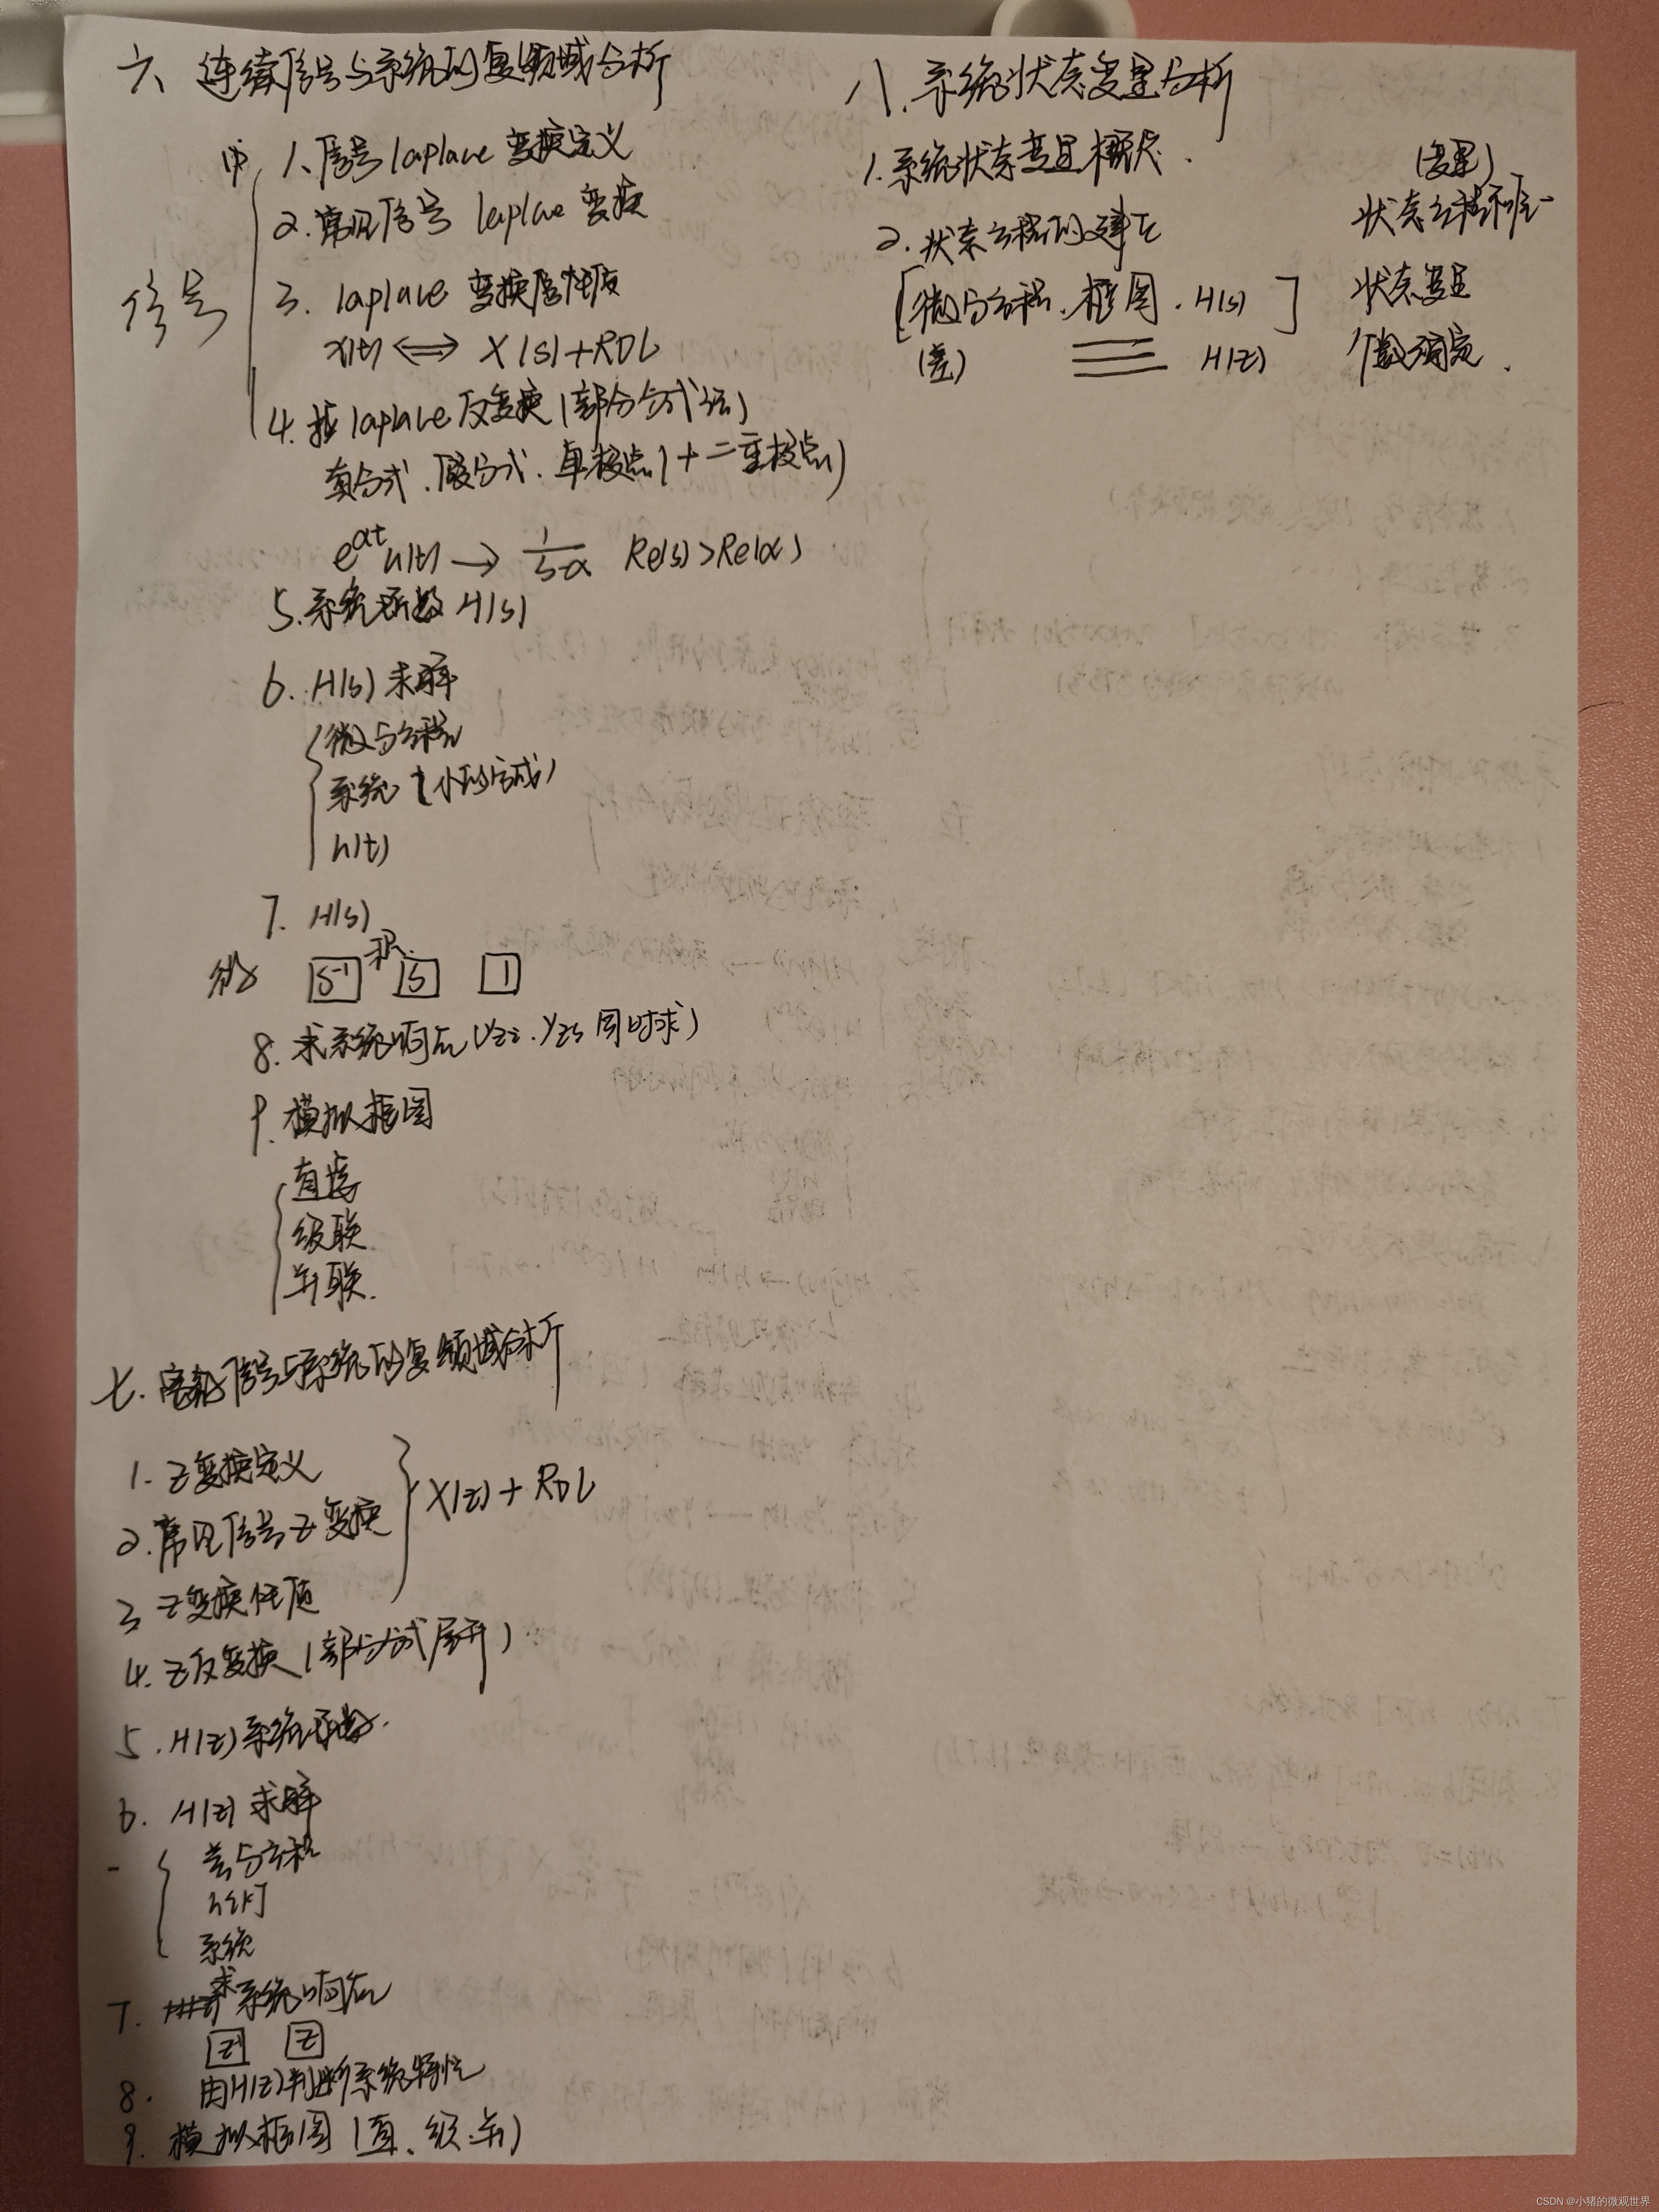 六 连续信号与系统的复频域分析
1. 信号 laplace 变换定义
2. 常见信号 laplace 变换
信号
3. laplace 变换性质
x(t) ⟺ X(s)+ROC
4. laplace 反变换(部分分式法)
真分式、假分式、单极点(+二重极点)
e^{αt}u(t) → 1/(s-α) Re(s)>Re(α)
5. 系统函数 H(s)
6. H(s)求解
微分方程
系统
h(t)
7. H(s)
S⁻¹ S 1
8. 求系统响应(yzi、yzs 同时求)
9. 模拟框图
直接
级联
并联.
七. 离散信号与系统的复频域分析
1. Z变换定义
2. 常见信号Z变换
X(z)+ROC
3 Z变换性质
4. Z反变换(部分分式展开)
5. H(z)系统函数.
6. H(z)求解
差分方程
h[k]
系统
7. 求系统响应
Z⁻¹ Z
8. 由H(z)判断系统特性
9. 模拟框图(直、级、并)
八. 系统状态变量分析
1. 系统状态变量概念.
2. 状态方程的建立
[微分方程、框图、H(s)]
(差) H(z)
(变量)
状态方程不唯一
状态变量
个数确定.
CSDN @小猪的微观世界